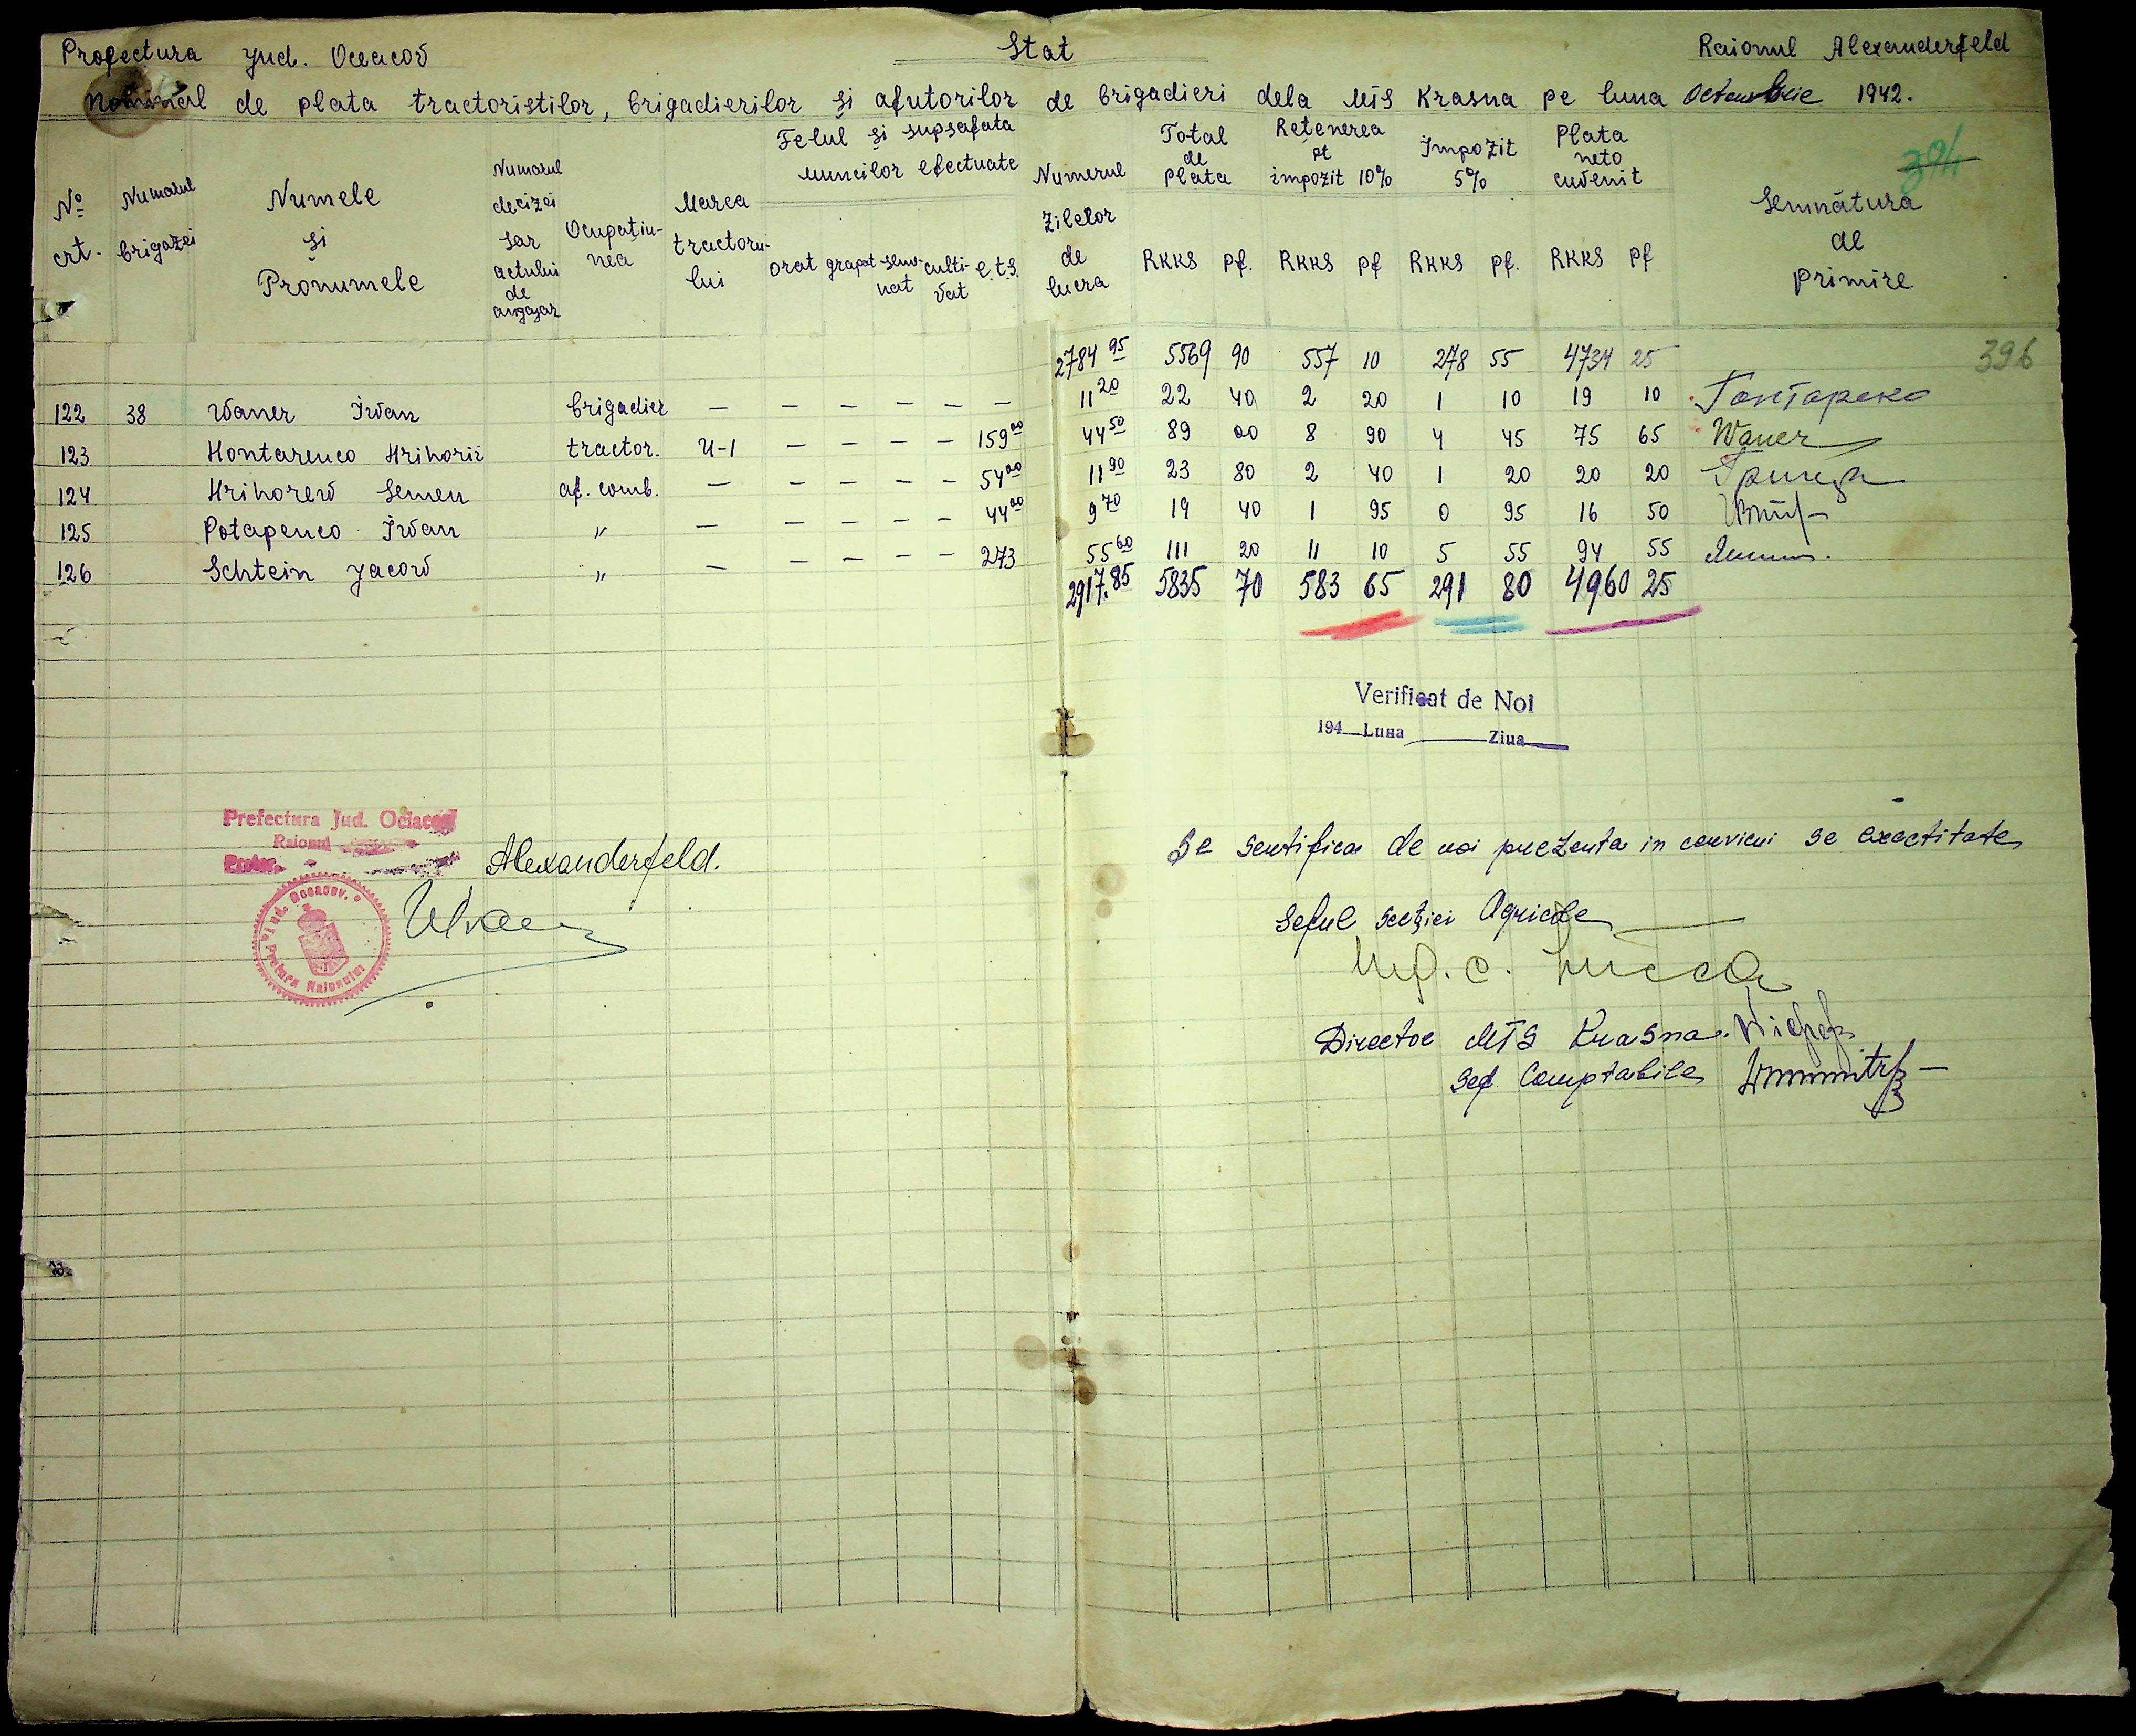 Profectura Jud. Oceacov
Stat
Raionul Alexanderfeld
Nominal de plata tractoristilor, brigadierilor și ajutorilor de brigadieri dela MTS Krasna pe luna Octombrie 1942.
394
№ crt.
Numarul brigazei
Numele și Pronumele
Numarul decizei sar actului de angajar
Ocupațiunea
Marca tractorului
Felul și supsafata muncilor efectuate
orat grapat semănat cultivat e.t.s.
Numerul zilelor de lucra
Total de plata RKKS pf.
Reținerea pt impozit 10% RKKS pf
Impozit 5% RKKS pf.
Plata neto cuvenit RKKS pf
Semnătura de primire
2784 95 5569 90 557 10 278 55 4734 25
396
122 38 Waner Iwan brigadier — — — — — — 11 20 22 40 2 20 1 10 19 10 Гонтаренко
123 Hontarenco Hrihorii tractor. U-1 — — — — 159 00 44 50 89 00 8 90 4 45 75 65 Waner
124 Hrihorew Semen aj. comb. — — — — — 54 00 11 90 23 80 2 40 1 20 20 20
125 Potapenco Iwan " — — — — — 44 00 9 70 19 40 1 95 0 95 16 50
126 Schtein Jacow " — — — — — 273 55 60 111 20 11 10 5 55 94 55
2917.85 5835 70 583 65 291 80 4960 25
Verificat de Noi
194 Luna Ziua
Prefectura Jud. Ociacov
Raionul
Alexanderfeld.
Jud. Oceacov.
Pretura Raionului
Se sertifica de noi prezenta in servicui se exactitate
Seful secției Agricole
Director MTS Krasna.
Sef Comptabile